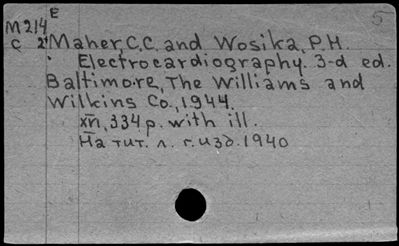 E
5
M214
C 2
Maher, C.C. and Wosika, P.H.
Electrocardiography. 3-d ed.
Baltimore, The Williams and
Wilkins Co., 1944.
334 p. with ill.
На тит. л. г. изд. 1940